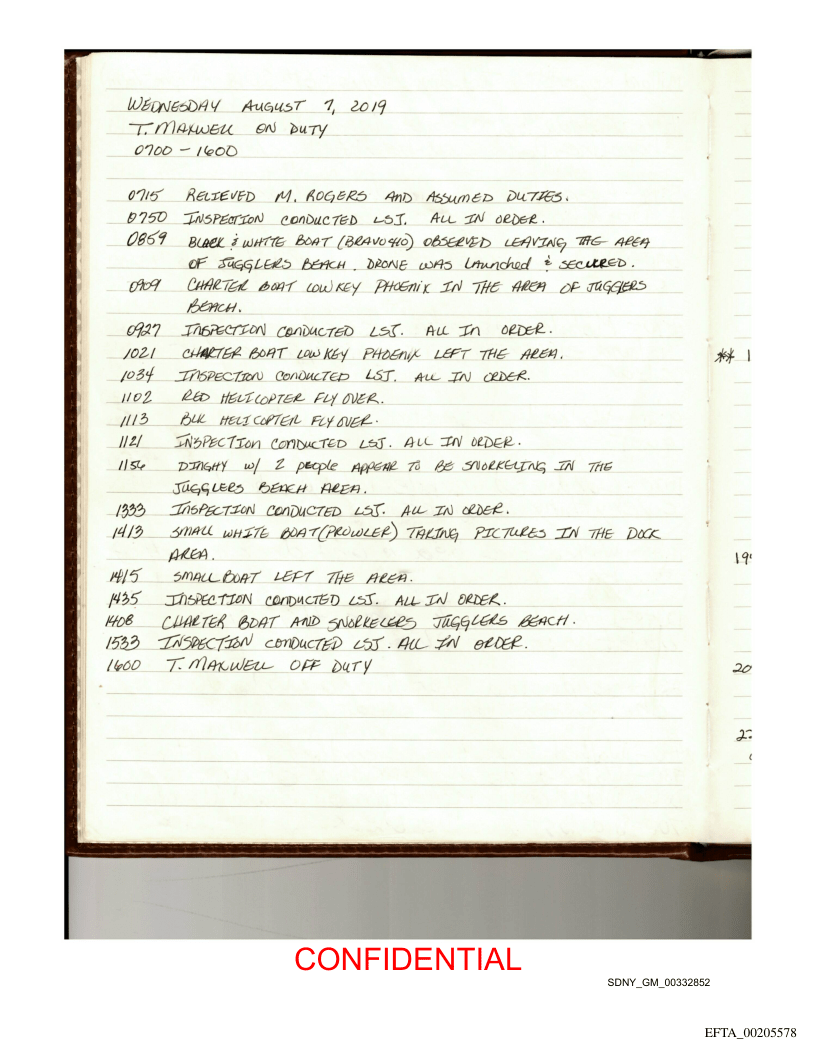 WEDNESDAY AUGUST 7, 2019
T. MAXWELL ON DUTY
0700 - 1600
0715 RELIEVED M. ROGERS AND ASSUMED DUTIES.
0750 INSPECTION CONDUCTED LSJ. ALL IN ORDER.
0859 BLACK & WHITE BOAT (BRAVO 410) OBSERVED LEAVING THE AREA
OF JUGGLERS BEACH. DRONE WAS LAUNCHED & SECURED.
0909 CHARTER BOAT LOW KEY PHOENIX IN THE AREA OF JUGGLERS
BEACH.
0927 INSPECTION CONDUCTED LSJ. ALL IN ORDER.
1021 CHARTER BOAT LOW KEY PHOENIX LEFT THE AREA.
1034 INSPECTION CONDUCTED LSJ. ALL IN ORDER.
1102 RED HELICOPTER FLY OVER.
1113 BLK HELICOPTER FLY OVER.
1121 INSPECTION CONDUCTED LSJ. ALL IN ORDER.
1156 DINGHY W/ 2 PEOPLE APPEAR TO BE SNORKELING IN THE
JUGGLERS BEACH AREA.
1333 INSPECTION CONDUCTED LSJ. ALL IN ORDER.
1413 SMALL WHITE BOAT (PROWLER) TAKING PICTURES IN THE DOCK
AREA.
1415 SMALL BOAT LEFT THE AREA.
1435 INSPECTION CONDUCTED LSJ. ALL IN ORDER.
1408 CHARTER BOAT AND SNORKELERS JUGGLERS BEACH.
1533 INSPECTION CONDUCTED LSJ. ALL IN ORDER.
1600 T. MAXWELL OFF DUTY
** 1
20
CONFIDENTIAL
SDNY_GM_00332852
EFTA_00205578